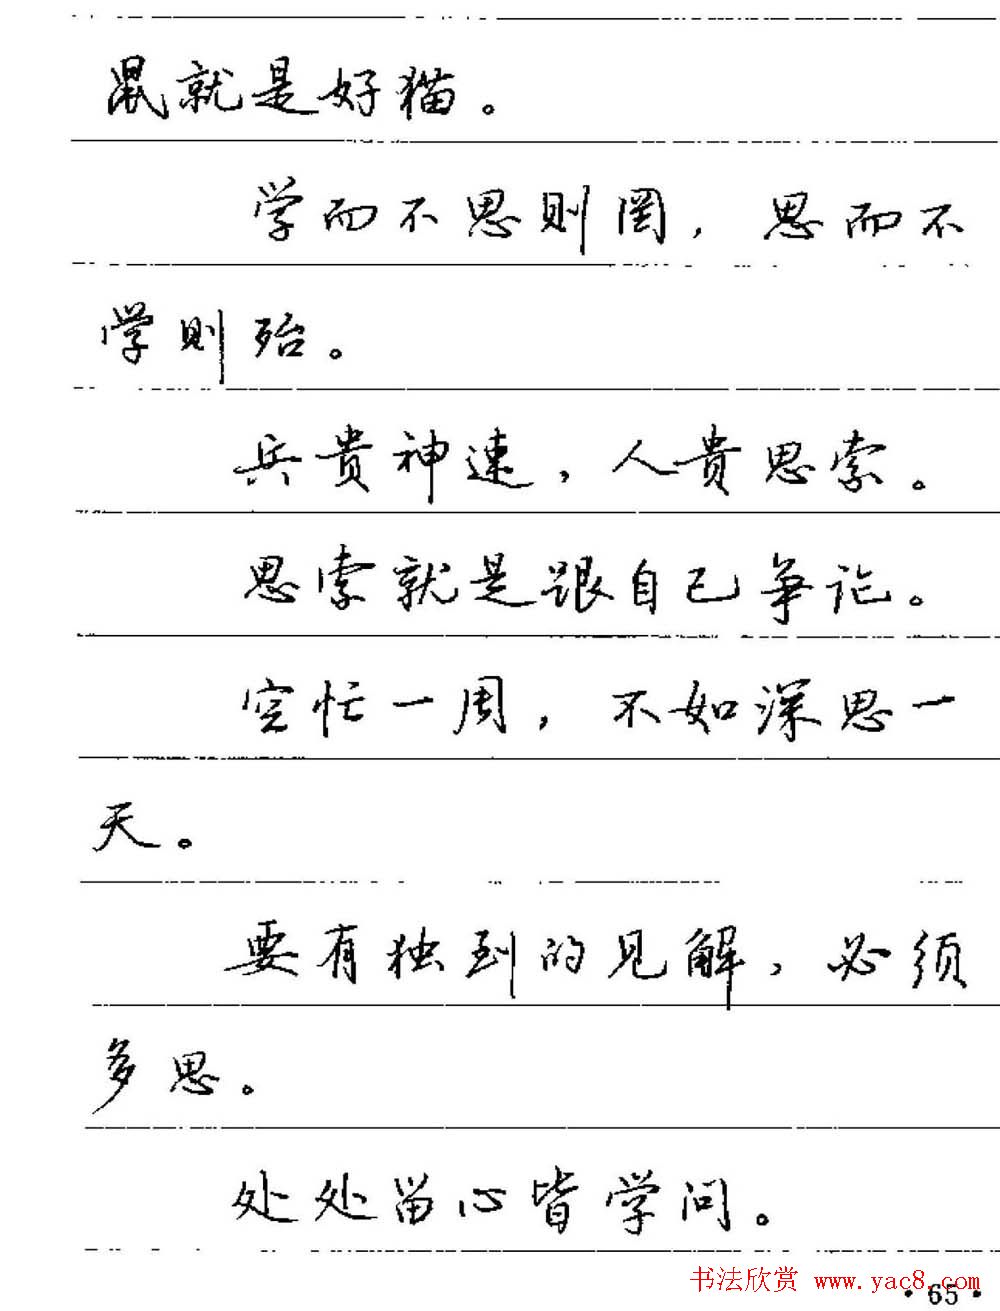 鼠就是好猫。
学而不思则罔，思而不
学则殆。
兵贵神速，人贵思索。
思索就是跟自己争论。
空忙一周，不如深思一
天。
要有独到的见解，必须
多思。
处处留心皆学问。
书法欣赏 www.yac8.com
·65·